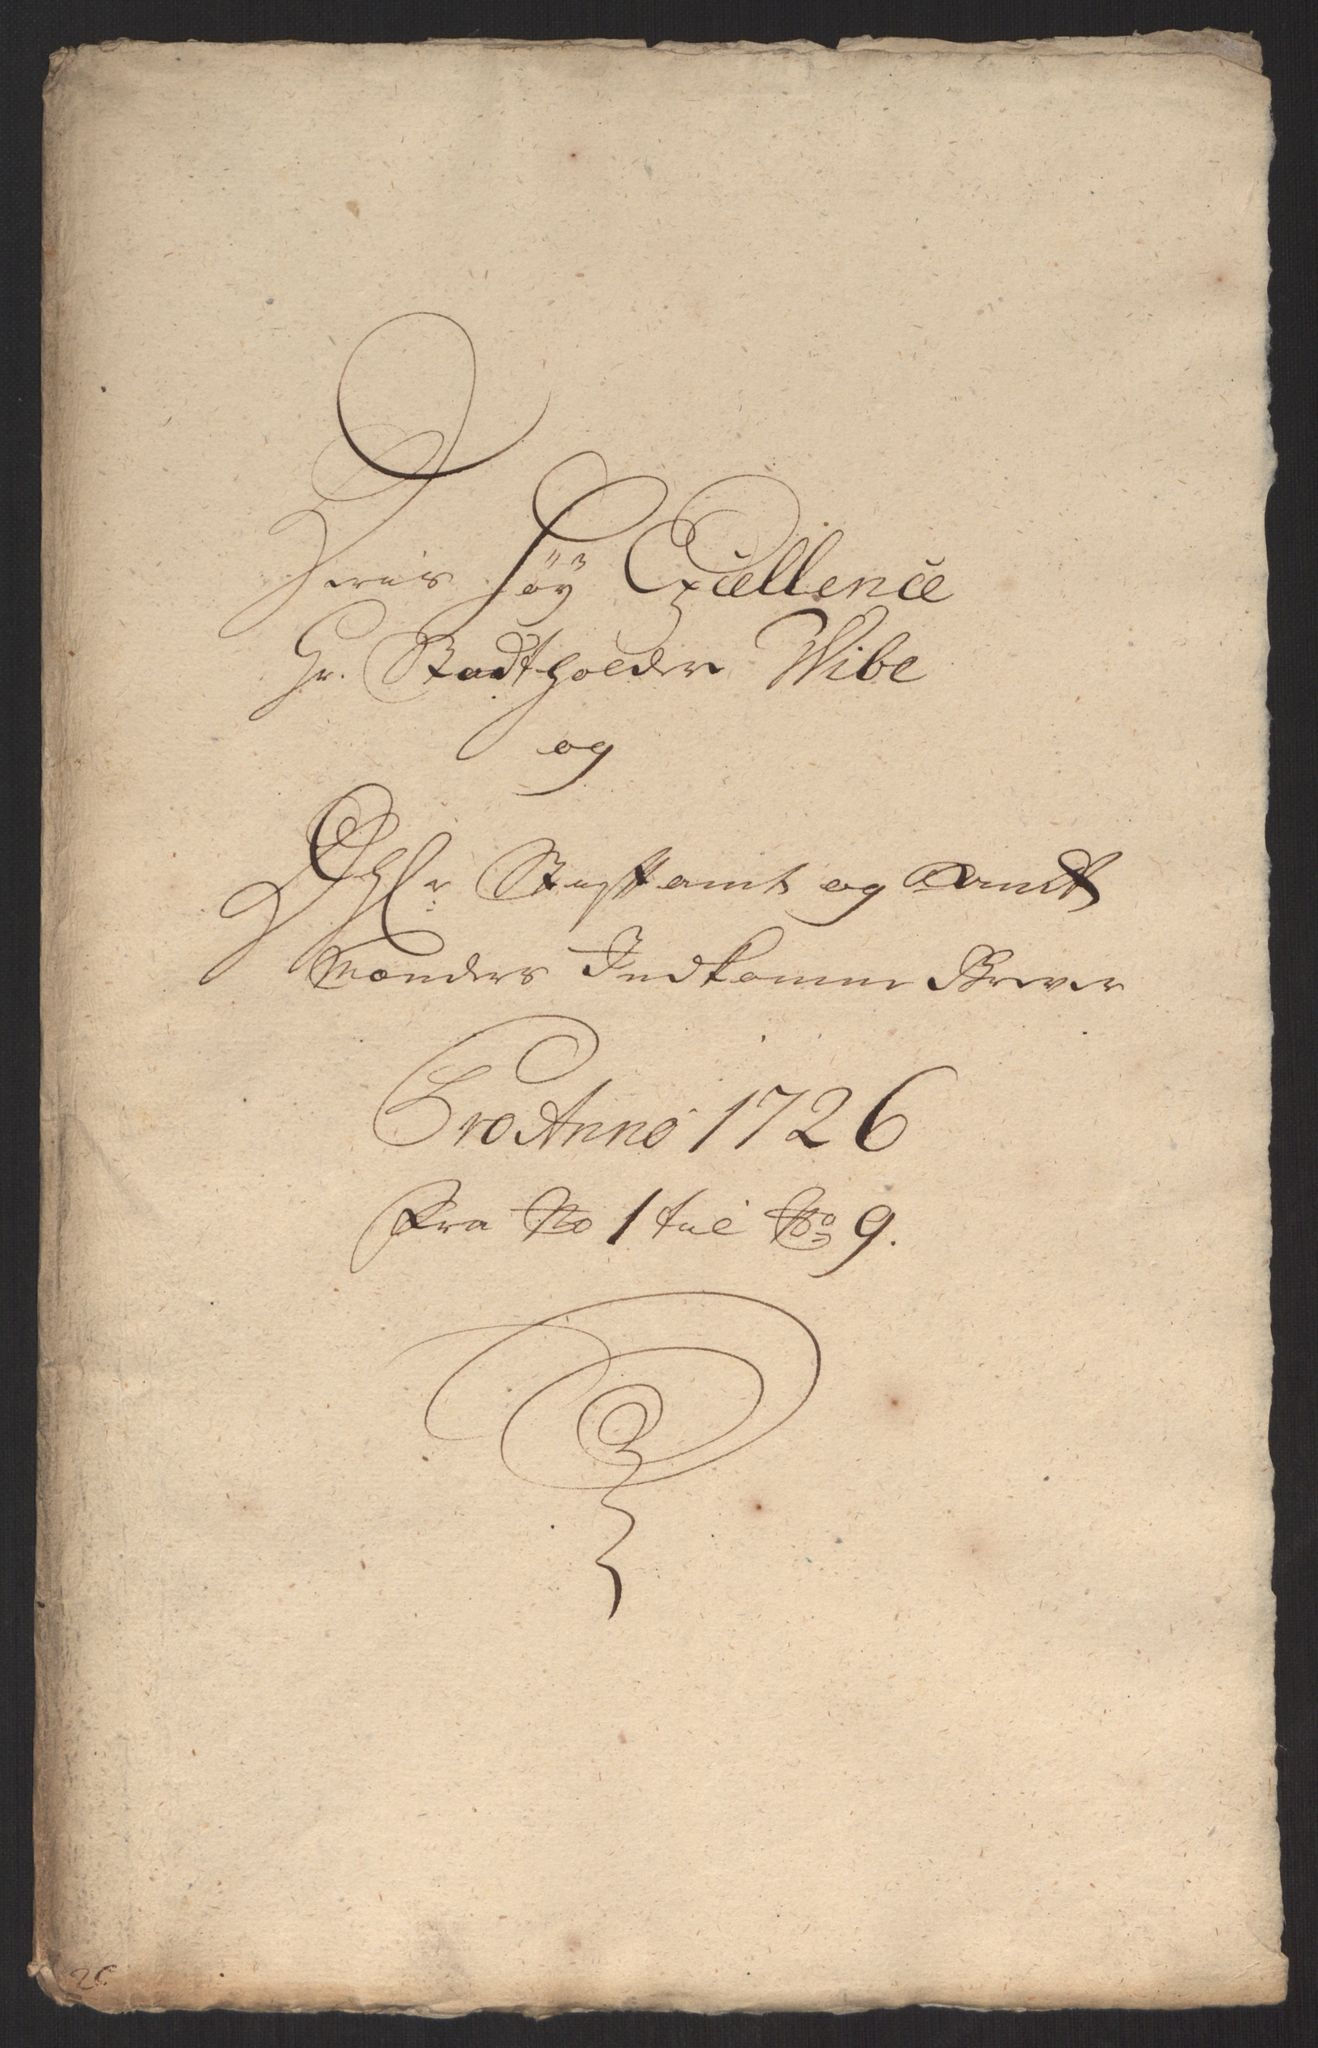 Hans Høÿ Excellence
Hr. Stadtholder Wibe
og
Hr. Stifftamt og Amdt
Mænders Indkomne Brever
Pro Anno 1726
Fra No 1 til No 9.